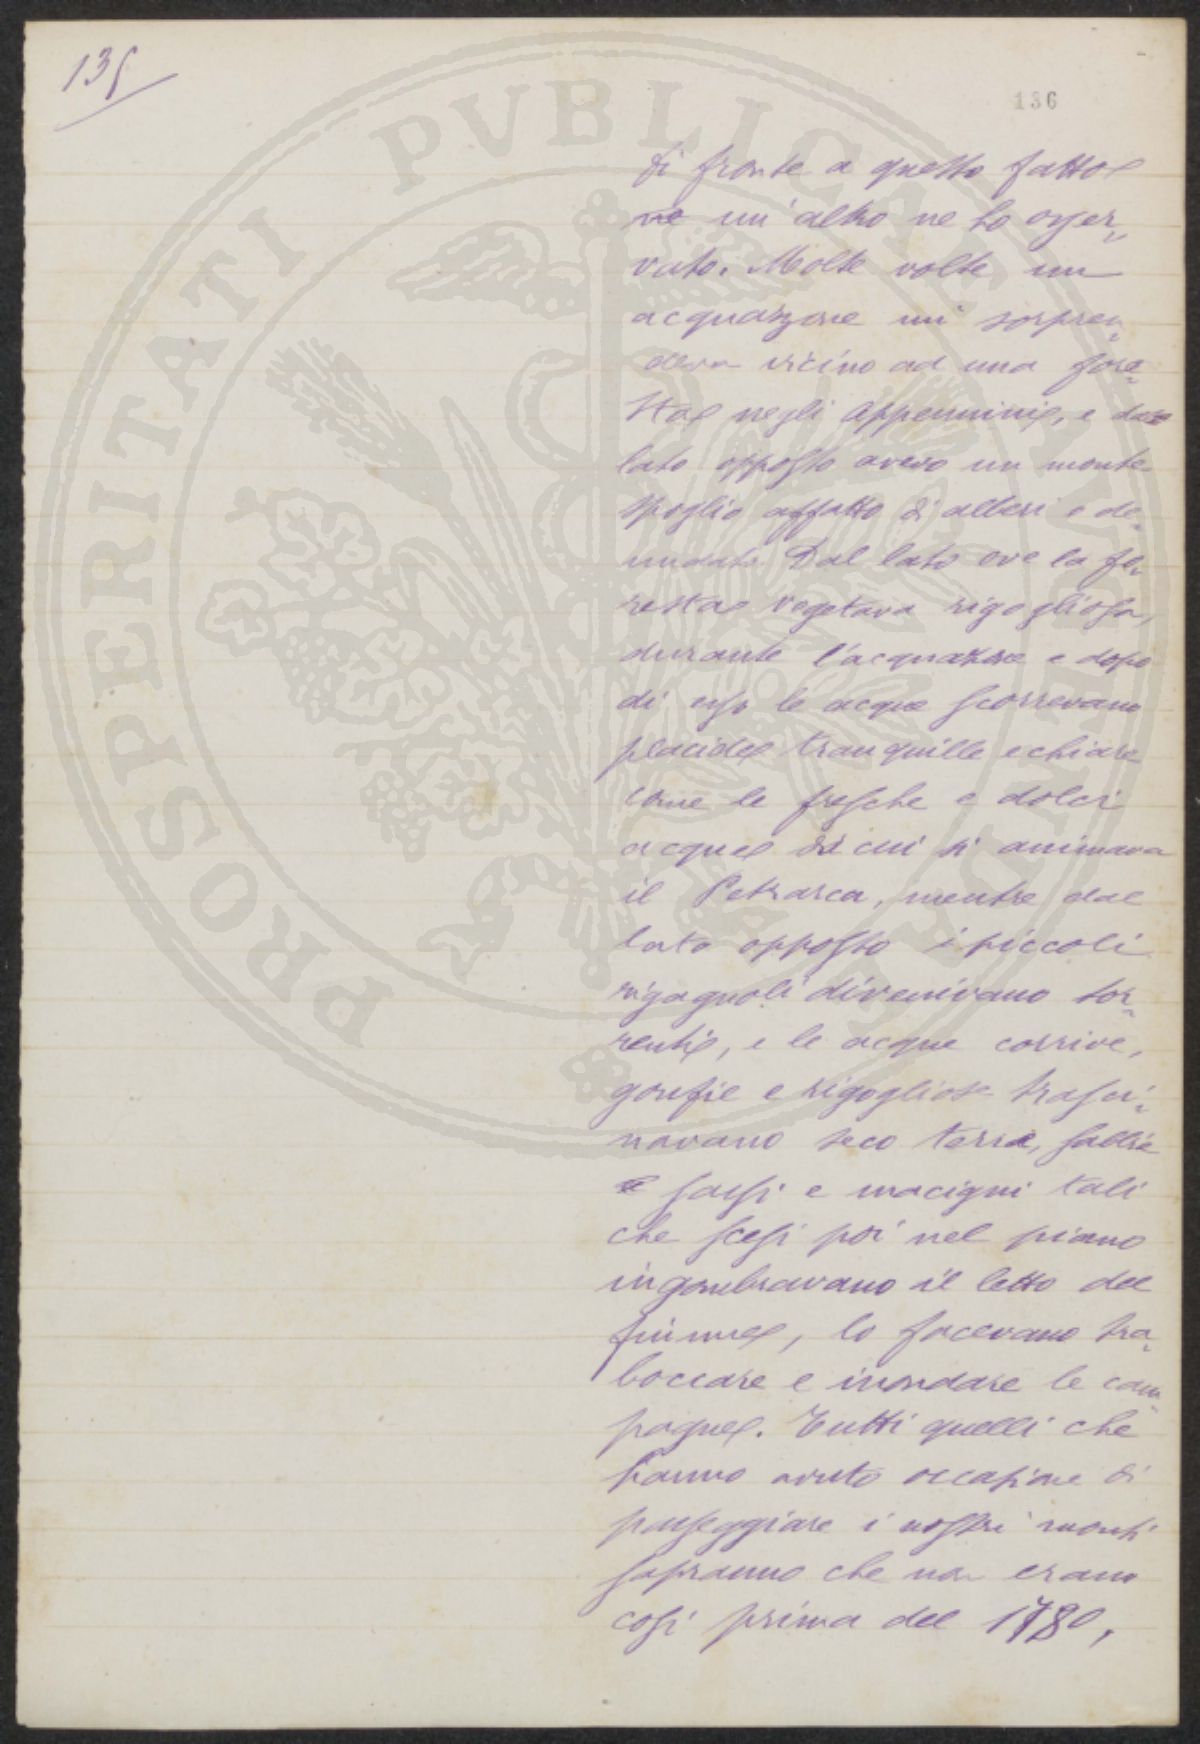 135
136
di fronte a questo fatto
ne un'altro ne ho osser-
vato. Molte volte un
acquazzone mi sorpren-
deva vicino ad una fore-
sta negli Appennini, e dal
lato opposto avevo un monte
spoglio affatto di alberi e de-
nudato. Dal lato ove la fo-
resta vegetava rigogliosa,
durante l'acquazzone e dopo
di esso le acque scorrevano
placide tranquille e chiare
come le fresche e dolci
acque di cui si animava
il Petrarca, mentre dal
lato opposto i piccoli
rigagnoli divenivano tor-
renti, e le acque corrive,
gonfie e rigogliose trasci-
navano seco terra, sabbie
sassi e macigni tali
che scesi poi nel piano
ingombravano il letto del
fiume, lo facevano tra-
boccare e inondare le cam-
pagne. Tutti quelli che
hanno avuto occasione di
passeggiare i nostri monti
sapranno che non erano
così prima del 1780,
PROSPERITATI PVBLICAE